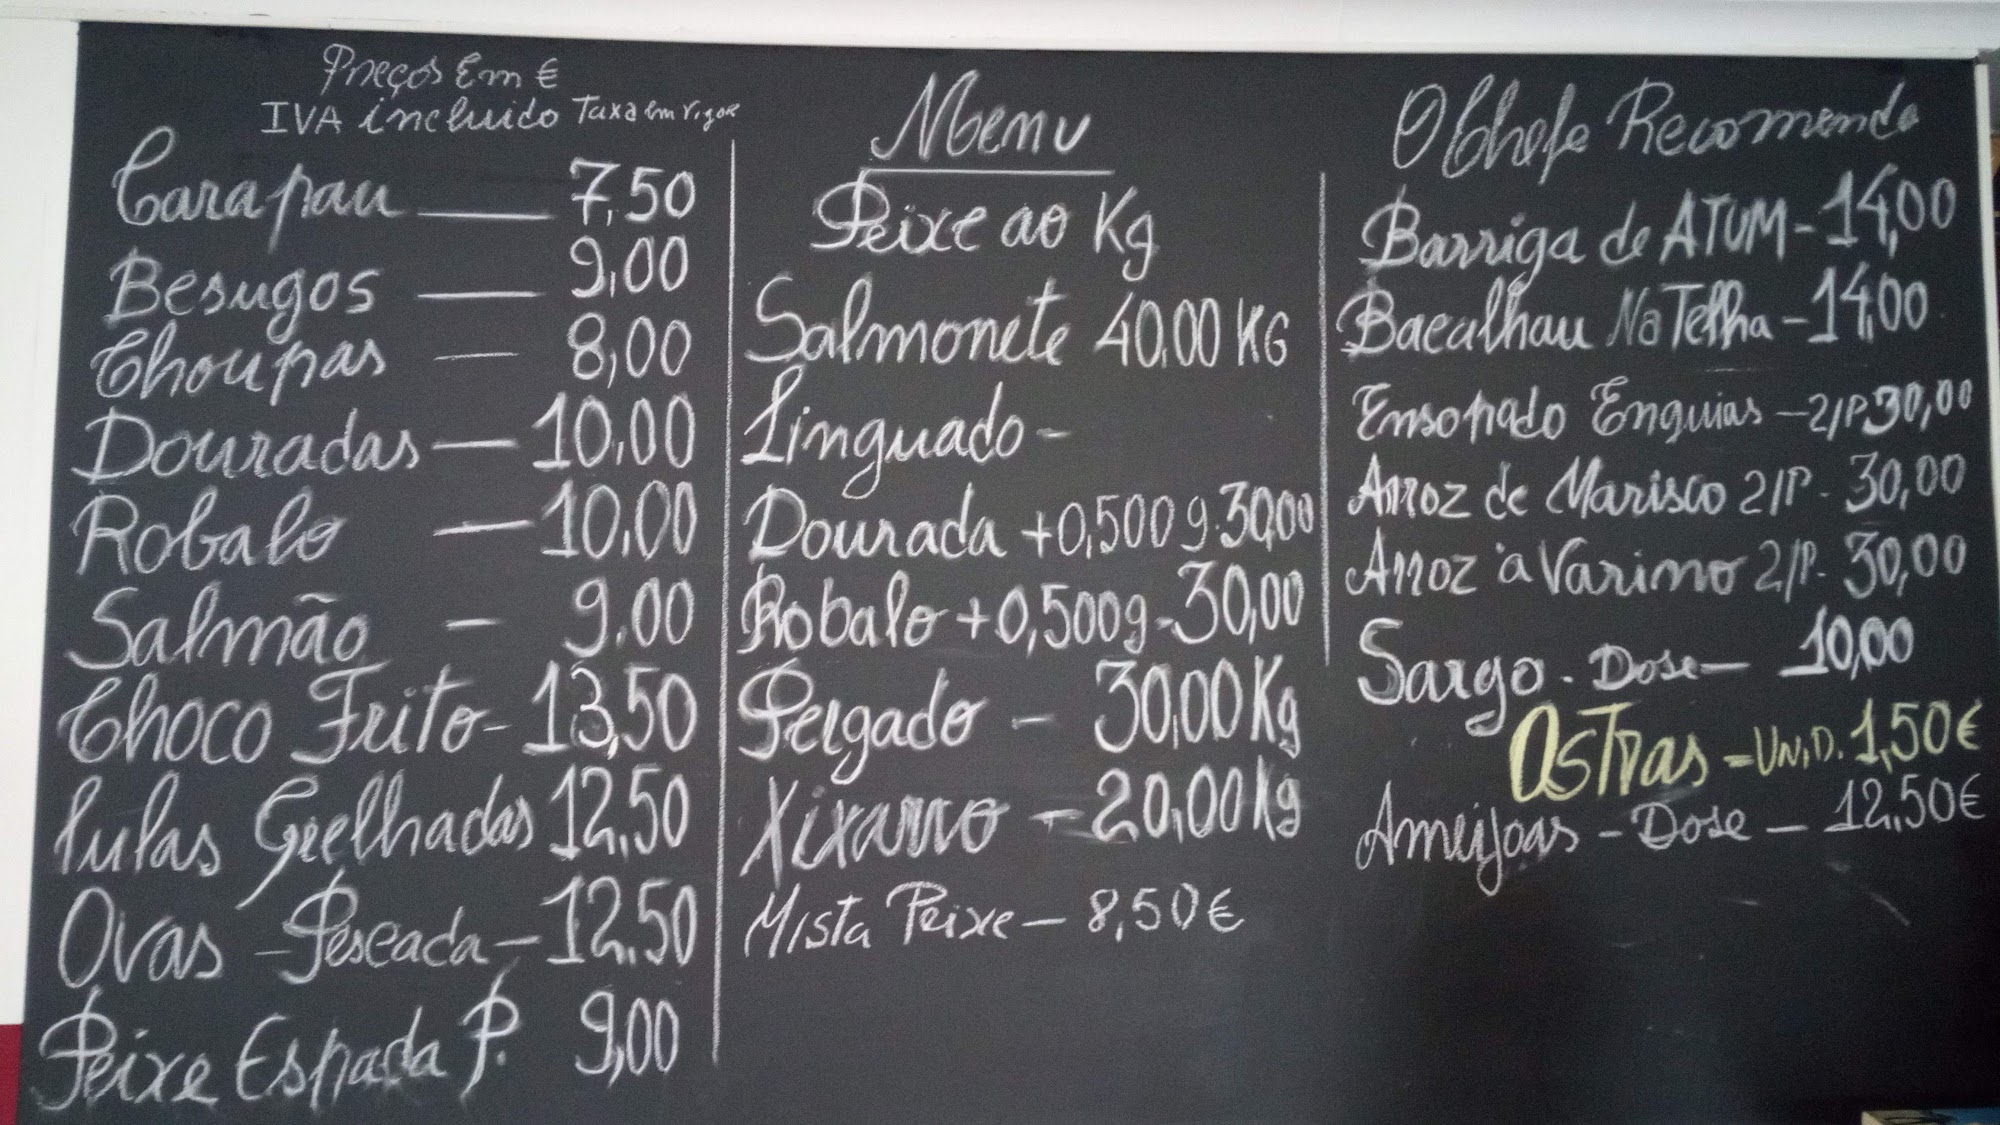 Preços Em €
IVA incluido Taxa em vigor
Carapau — 7,50
Besugos — 9,00
Choupas — 8,00
Douradas — 10,00
Robalo — 10,00
Salmão — 9,00
Choco Frito - 13,50
Lulas Grelhadas 12,50
Ovas - Pescada - 12,50
Peixe Espada P. 9,00
Menu
Peixe ao Kg
Salmonete 40,00 KG
Linguado -
Dourada +0,500g. 30,00
Robalo +0,500g - 30,00
Pergado - 30,00 Kg
Xixarro - 20,00 Kg
Mista Peixe - 8,50€
O Chefe Recomenda
Barriga de ATUM - 14,00
Bacalhau Na Telha - 14,00
Ensopado Enguias - 2/P. 30,00
Arroz de Marisco 2/P - 30,00
Arroz à Varino 2/P - 30,00
Sargo - Dose - 10,00
Ostras - UNID. 1,50€
Ameijoas - Dose - 12,50€